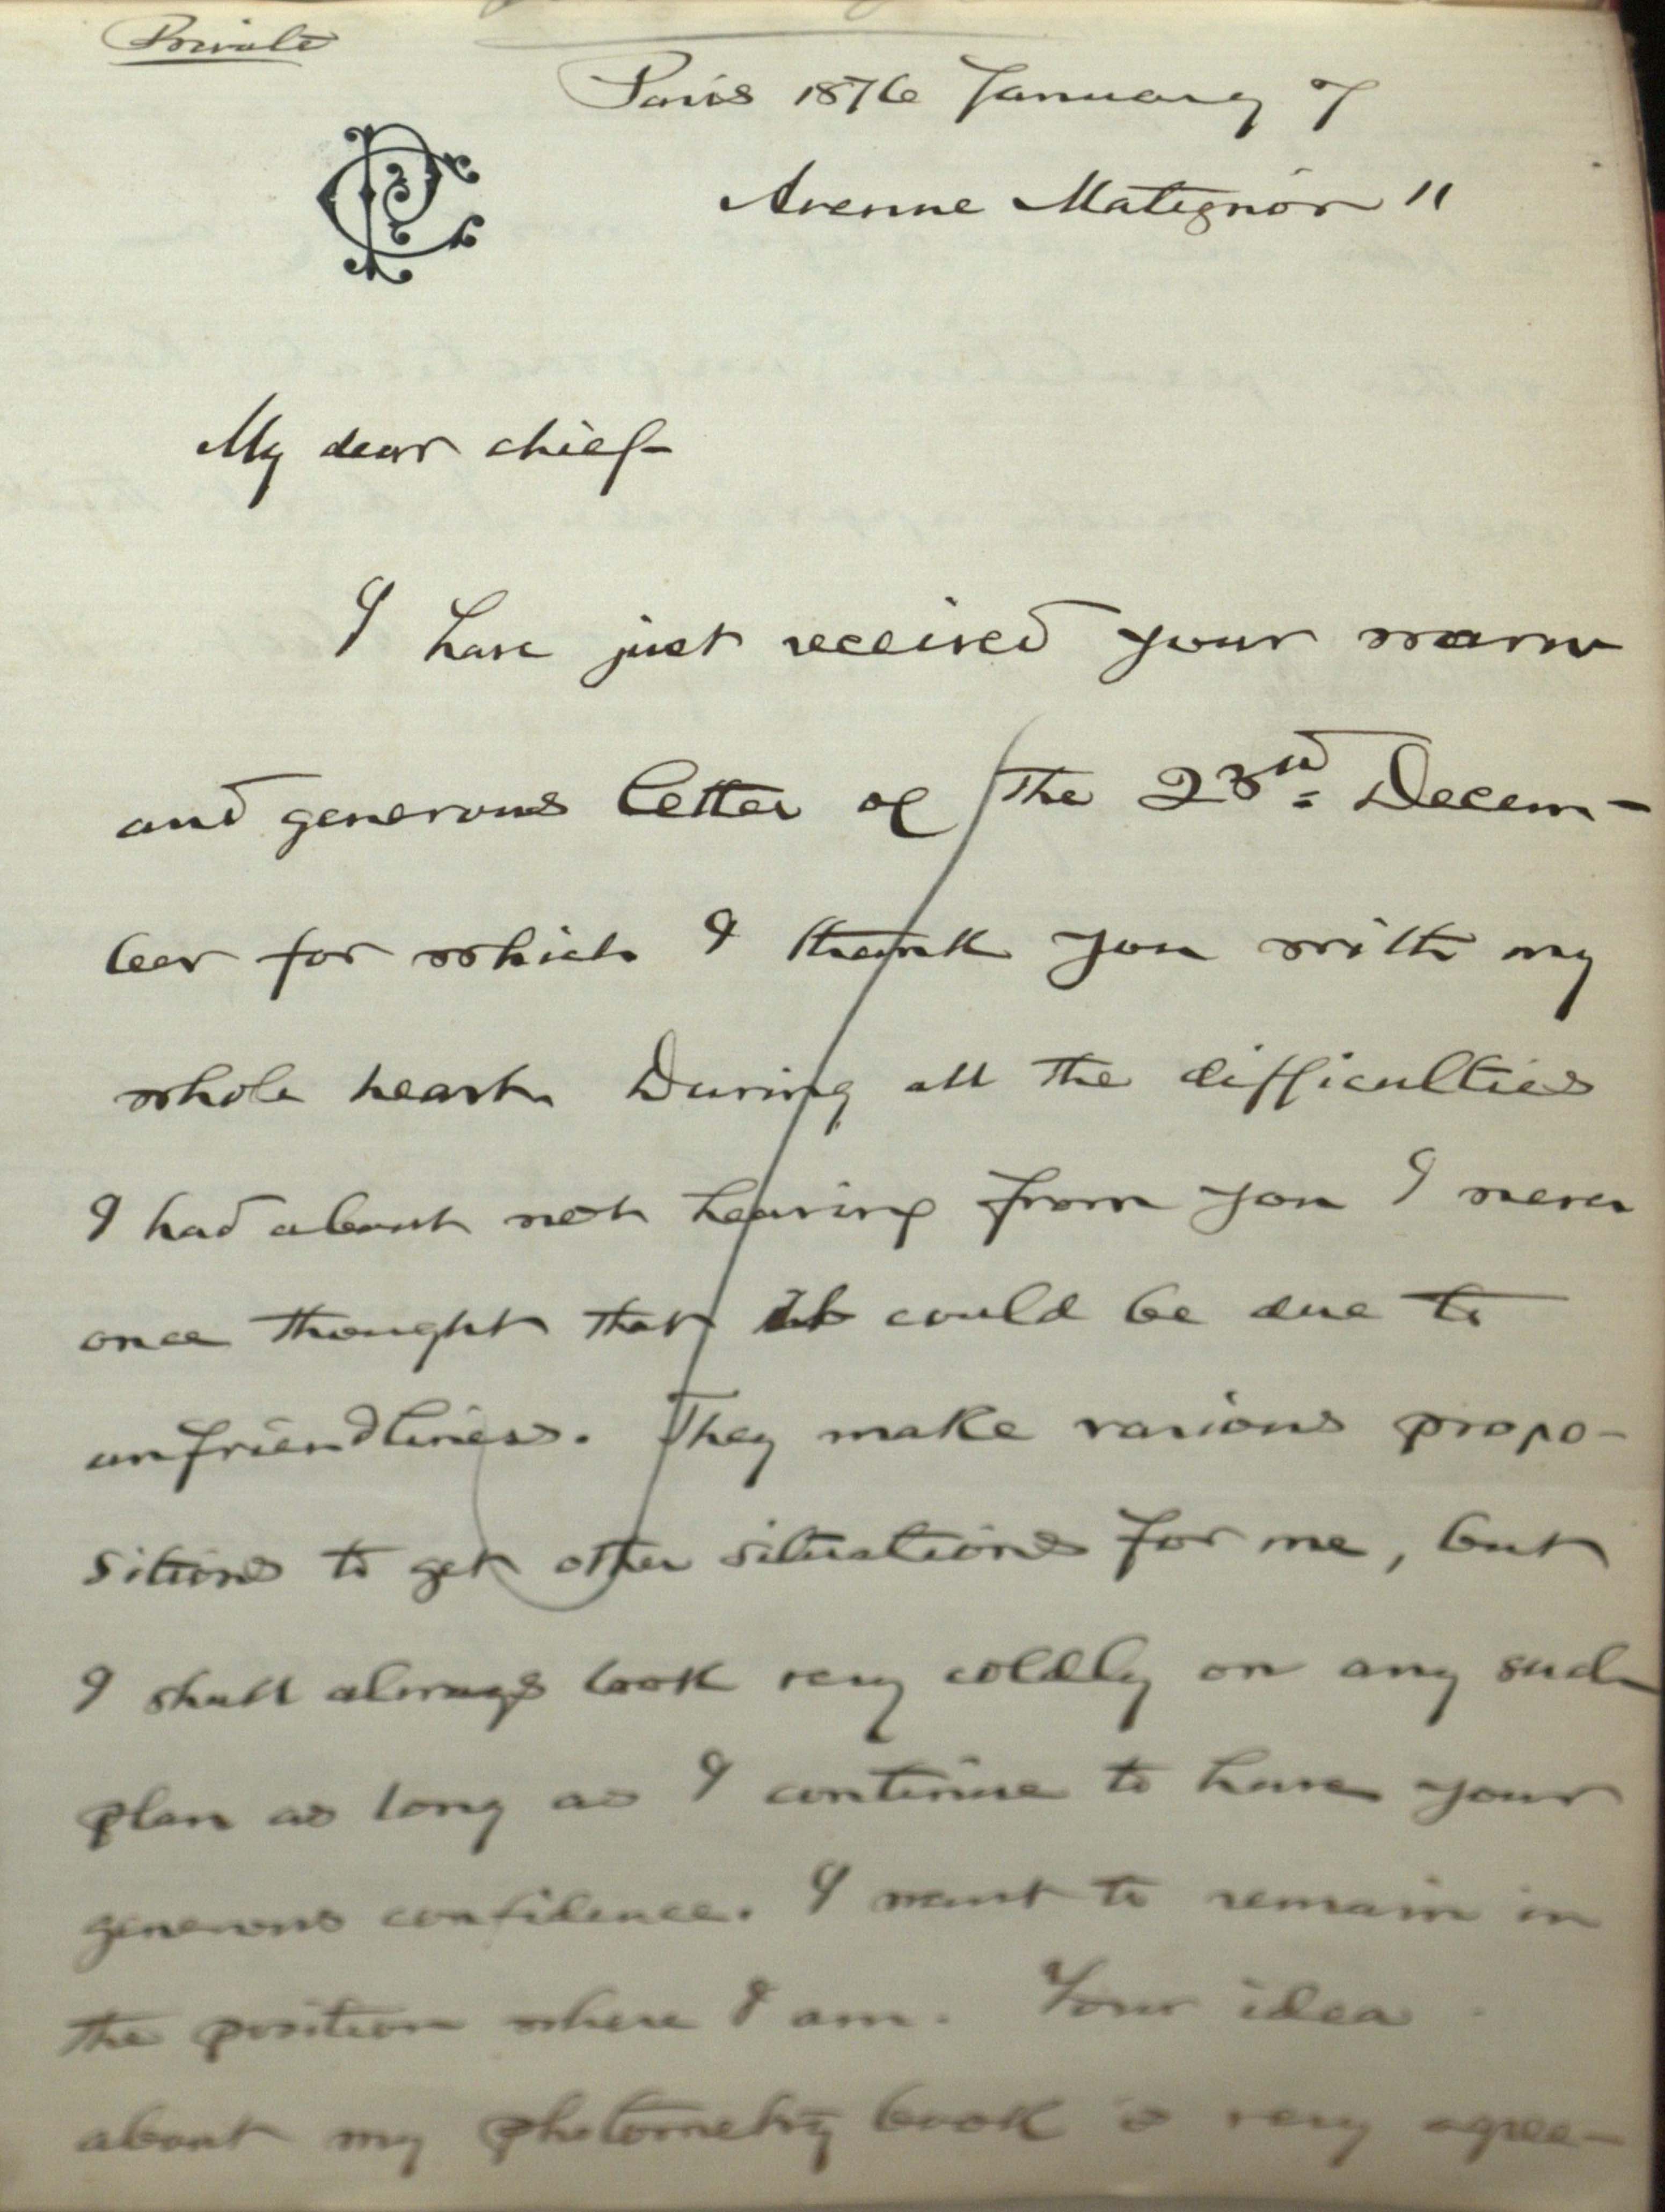 Private
Paris 1876 January 7
Avenue Matignon 11
My dear chief
I have just received your warm
and generous letter of the 23rd Decem-
ber for which I thank you with my
whole heart. During all the difficulties
I had about not hearing from you I never
once thought that it could be due to
unfriendliness. They make various propo-
sitions to get other situations for me, but
I shall always look very coldly on any such
plan as long as I continue to have your
generous confidence. I want to remain in
the position where I am. Your idea
about my photometry book is very agree-